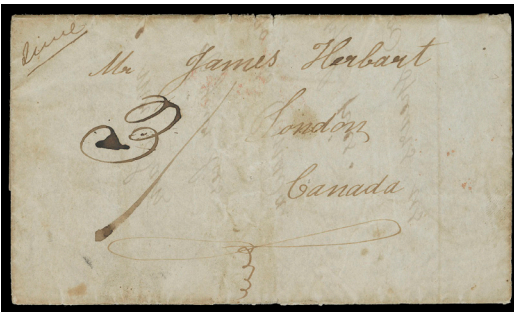 Mr James Herbart
London
Canada